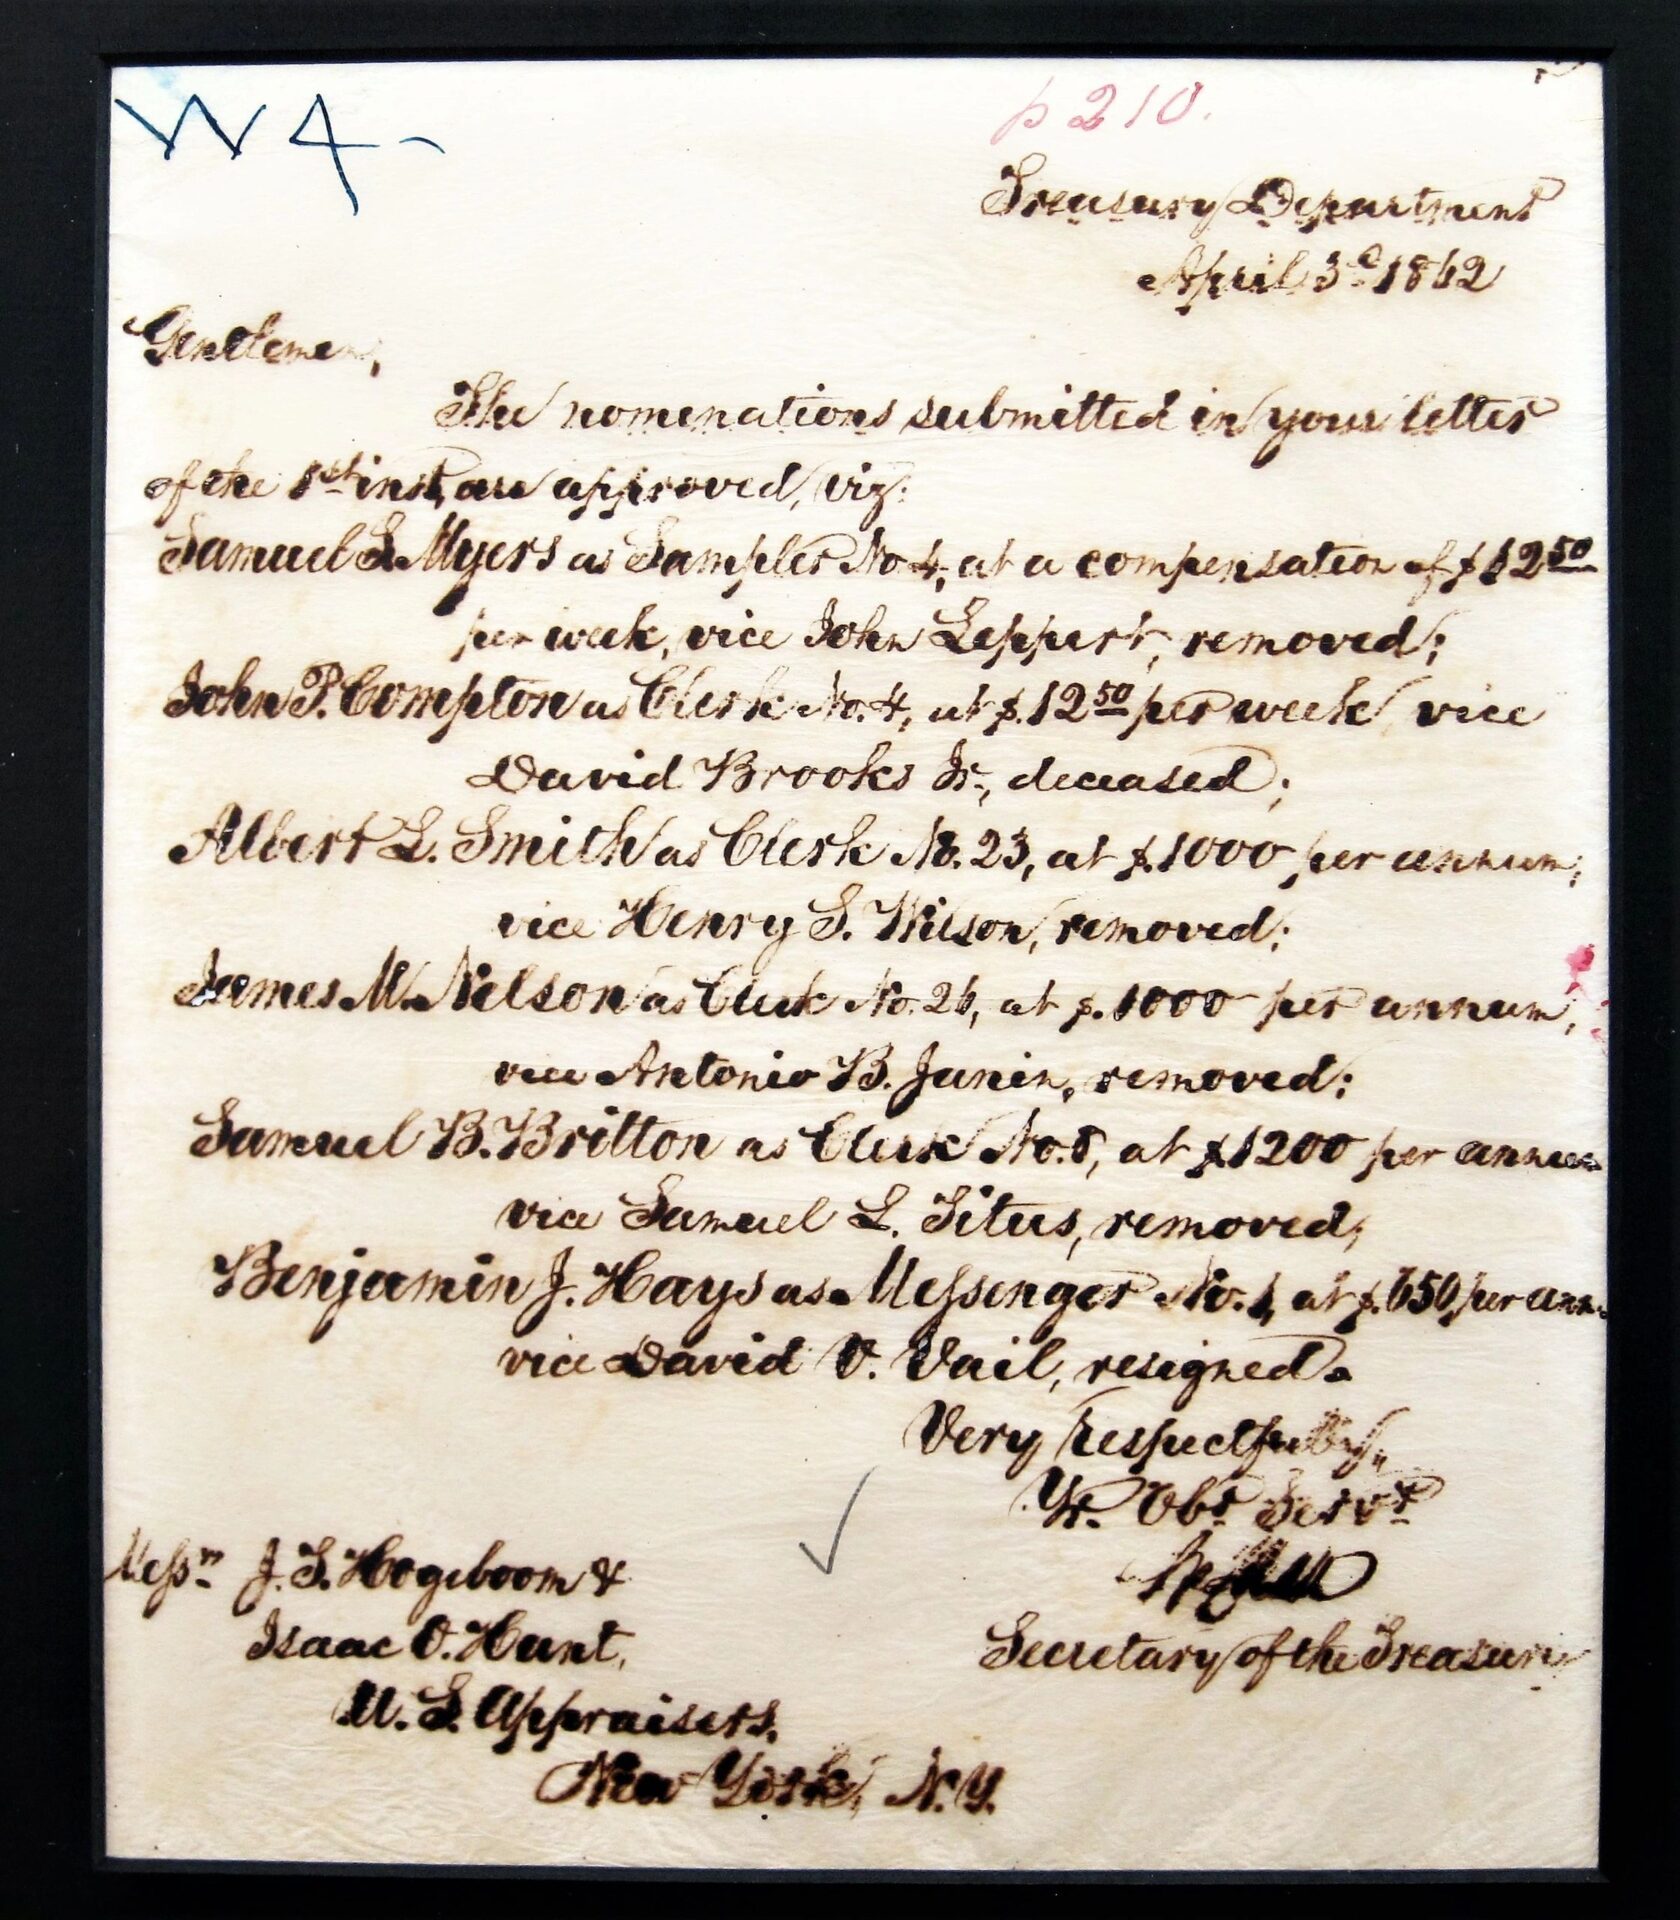 W 4-
p 210.
Treasury Department
April 3d 1862
Gentlemen,
The nominations submitted in your letter
of the 1st inst, are approved, viz:
Samuel S. Myers as Sampler No 4, at a compensation of $12 50
per week, vice John Leppert, removed;
John P. Compton as Clerk No. 4, at $.12 50 per week, vice
David Brooks Jr., deceased;
Albert L. Smith as Clerk No. 23, at $.1000 per annum,
vice Henry S. Wilson, removed;
James M. Nelson as Clerk No. 26, at $.1000 per annum,
vice Antonio B. Janin, removed;
Samuel B. Britton as Clerk No. 8, at $1200 per annum
vice Samuel L. Titus, removed;
Benjamin J. Hays as Messenger No. 1, at $.650 per ann
vice David V. Vail, resigned.
Very respectfully,
Yr. Obt Servt
Secretary of the Treasury
Messrs J. S. Hogeboom &
Isaac O. Hunt,
U. S. Appraisers,
New York, N.Y.